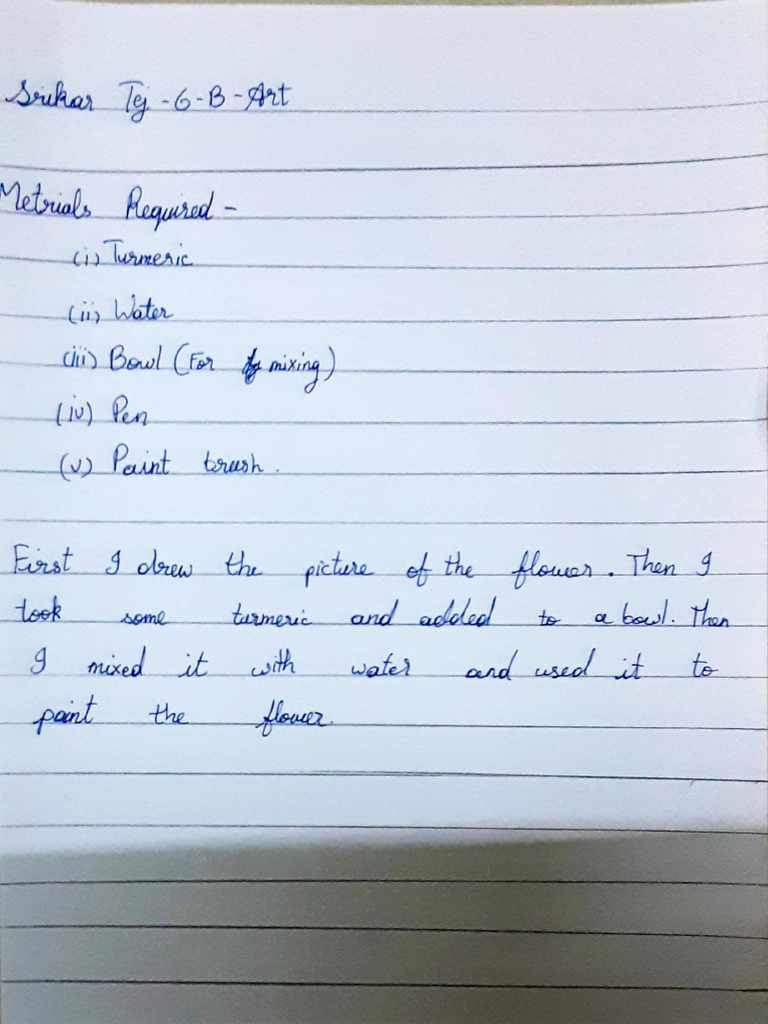 Srikar Tej - 6 - B - Art
Metrials Required -
(i) Turmeric
(ii) Water
(iii) Bowl (For mixing)
(iv) Pen
(v) Paint brush.
First I drew the picture of the flower. Then I
took some turmeric and added to a bowl. Then
I mixed it with water and used it to
paint the flower.